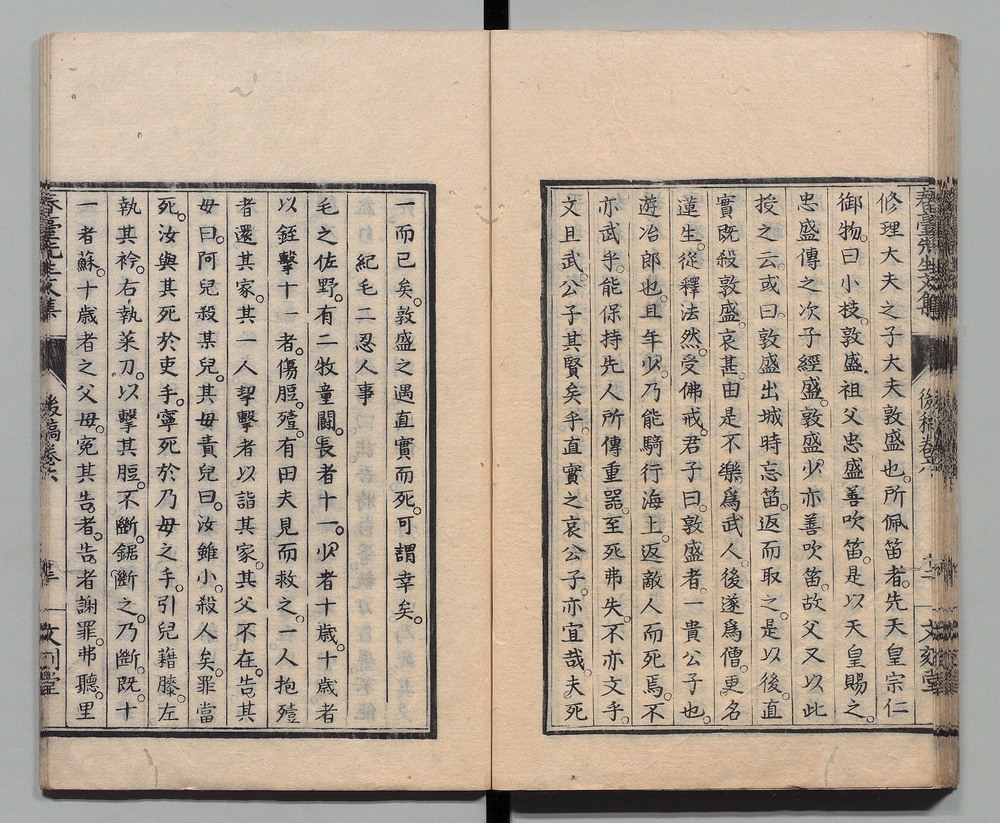 春臺先生文集 後稿卷六 文刻堂
修理大夫之子大夫敦盛也。所佩笛者。先天皇宗仁
御物。曰小枝。敦盛祖父忠盛善吹笛。是以天皇賜之。
忠盛傳之次子經盛。敦盛少。亦善吹笛。故父又以此
授之云。或曰。敦盛出城時忘笛。返而取之。是以後。直
實既殺敦盛。哀甚。由是不樂爲武人。後遂爲僧。更名
蓮生。從釋法然。受佛戒。君子曰。敦盛者。一貴公子也。
遊冶郎也。且年少。乃能騎行海上。返敵人而死焉。不
亦武乎。能保持先人所傳重器。至死弗失。不亦文乎。
文且武。公子其賢矣乎。直實之哀公子。亦宜哉。夫死
一而已矣。敦盛之遇直實而死。可謂幸矣。
紀毛二忍人事
毛之佐野。有二牧童鬪。長者十一。少者十歲。十歲者
以銍擊十一者。傷脰。殪。有田夫見而救之。一人抱殪
者還其家。其一人挈擊者以詣其家。其父不在。告其
母曰。阿兒殺某兒。其母責兒曰。汝雖小。殺人矣。罪當
死。汝與其死於吏手。寧死於乃母之手。引兒藉膝。左
執其衿。右執菜刀。以擊其脰。不斷。鋸斷之。乃斷。既。十
一者蘇。十歲者之父母。冤其告者。告者謝罪。弗聽。里
春臺先生文集 後稿卷六 文刻堂